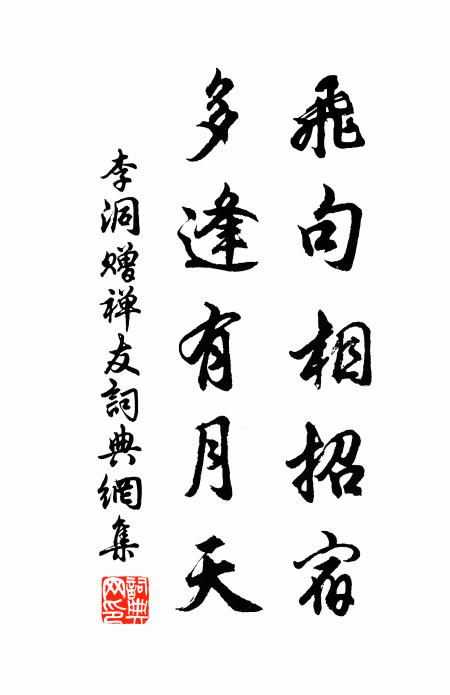 飛句相招宿
多逢有月天
李洞赠禅友詞典網集
詞典
网印